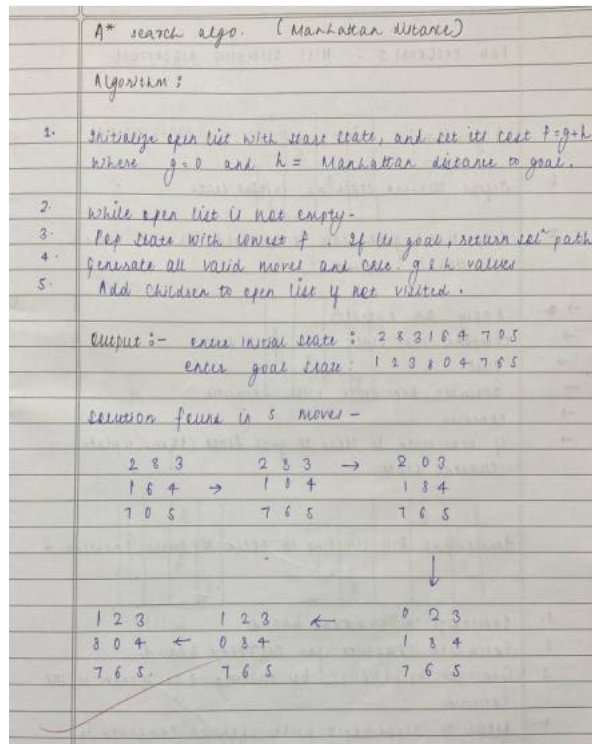 A* search algo. (Manhattan distance)
Algorithm :
1. Initialize open list with start state, and set its cost f=g+h
where g=0 and h= Manhattan distance to goal.
2. While open list is not empty-
3. Pop state with lowest f. If its goal, return solⁿ path
4. Generate all valid moves and calc. g & h values
5. Add children to open list if not visited.
Output :- enter initial state : 2 8 3 1 6 4 7 0 5
enter goal state : 1 2 3 8 0 4 7 6 5
Solution found in 5 moves -
2 8 3 2 8 3 → 2 0 3
1 6 4 → 1 0 4 1 8 4
7 0 5 7 6 5 7 6 5
↓
1 2 3 1 2 3 ← 0 2 3
8 0 4 ← 0 8 4 1 8 4
7 6 5. 7 6 5 7 6 5